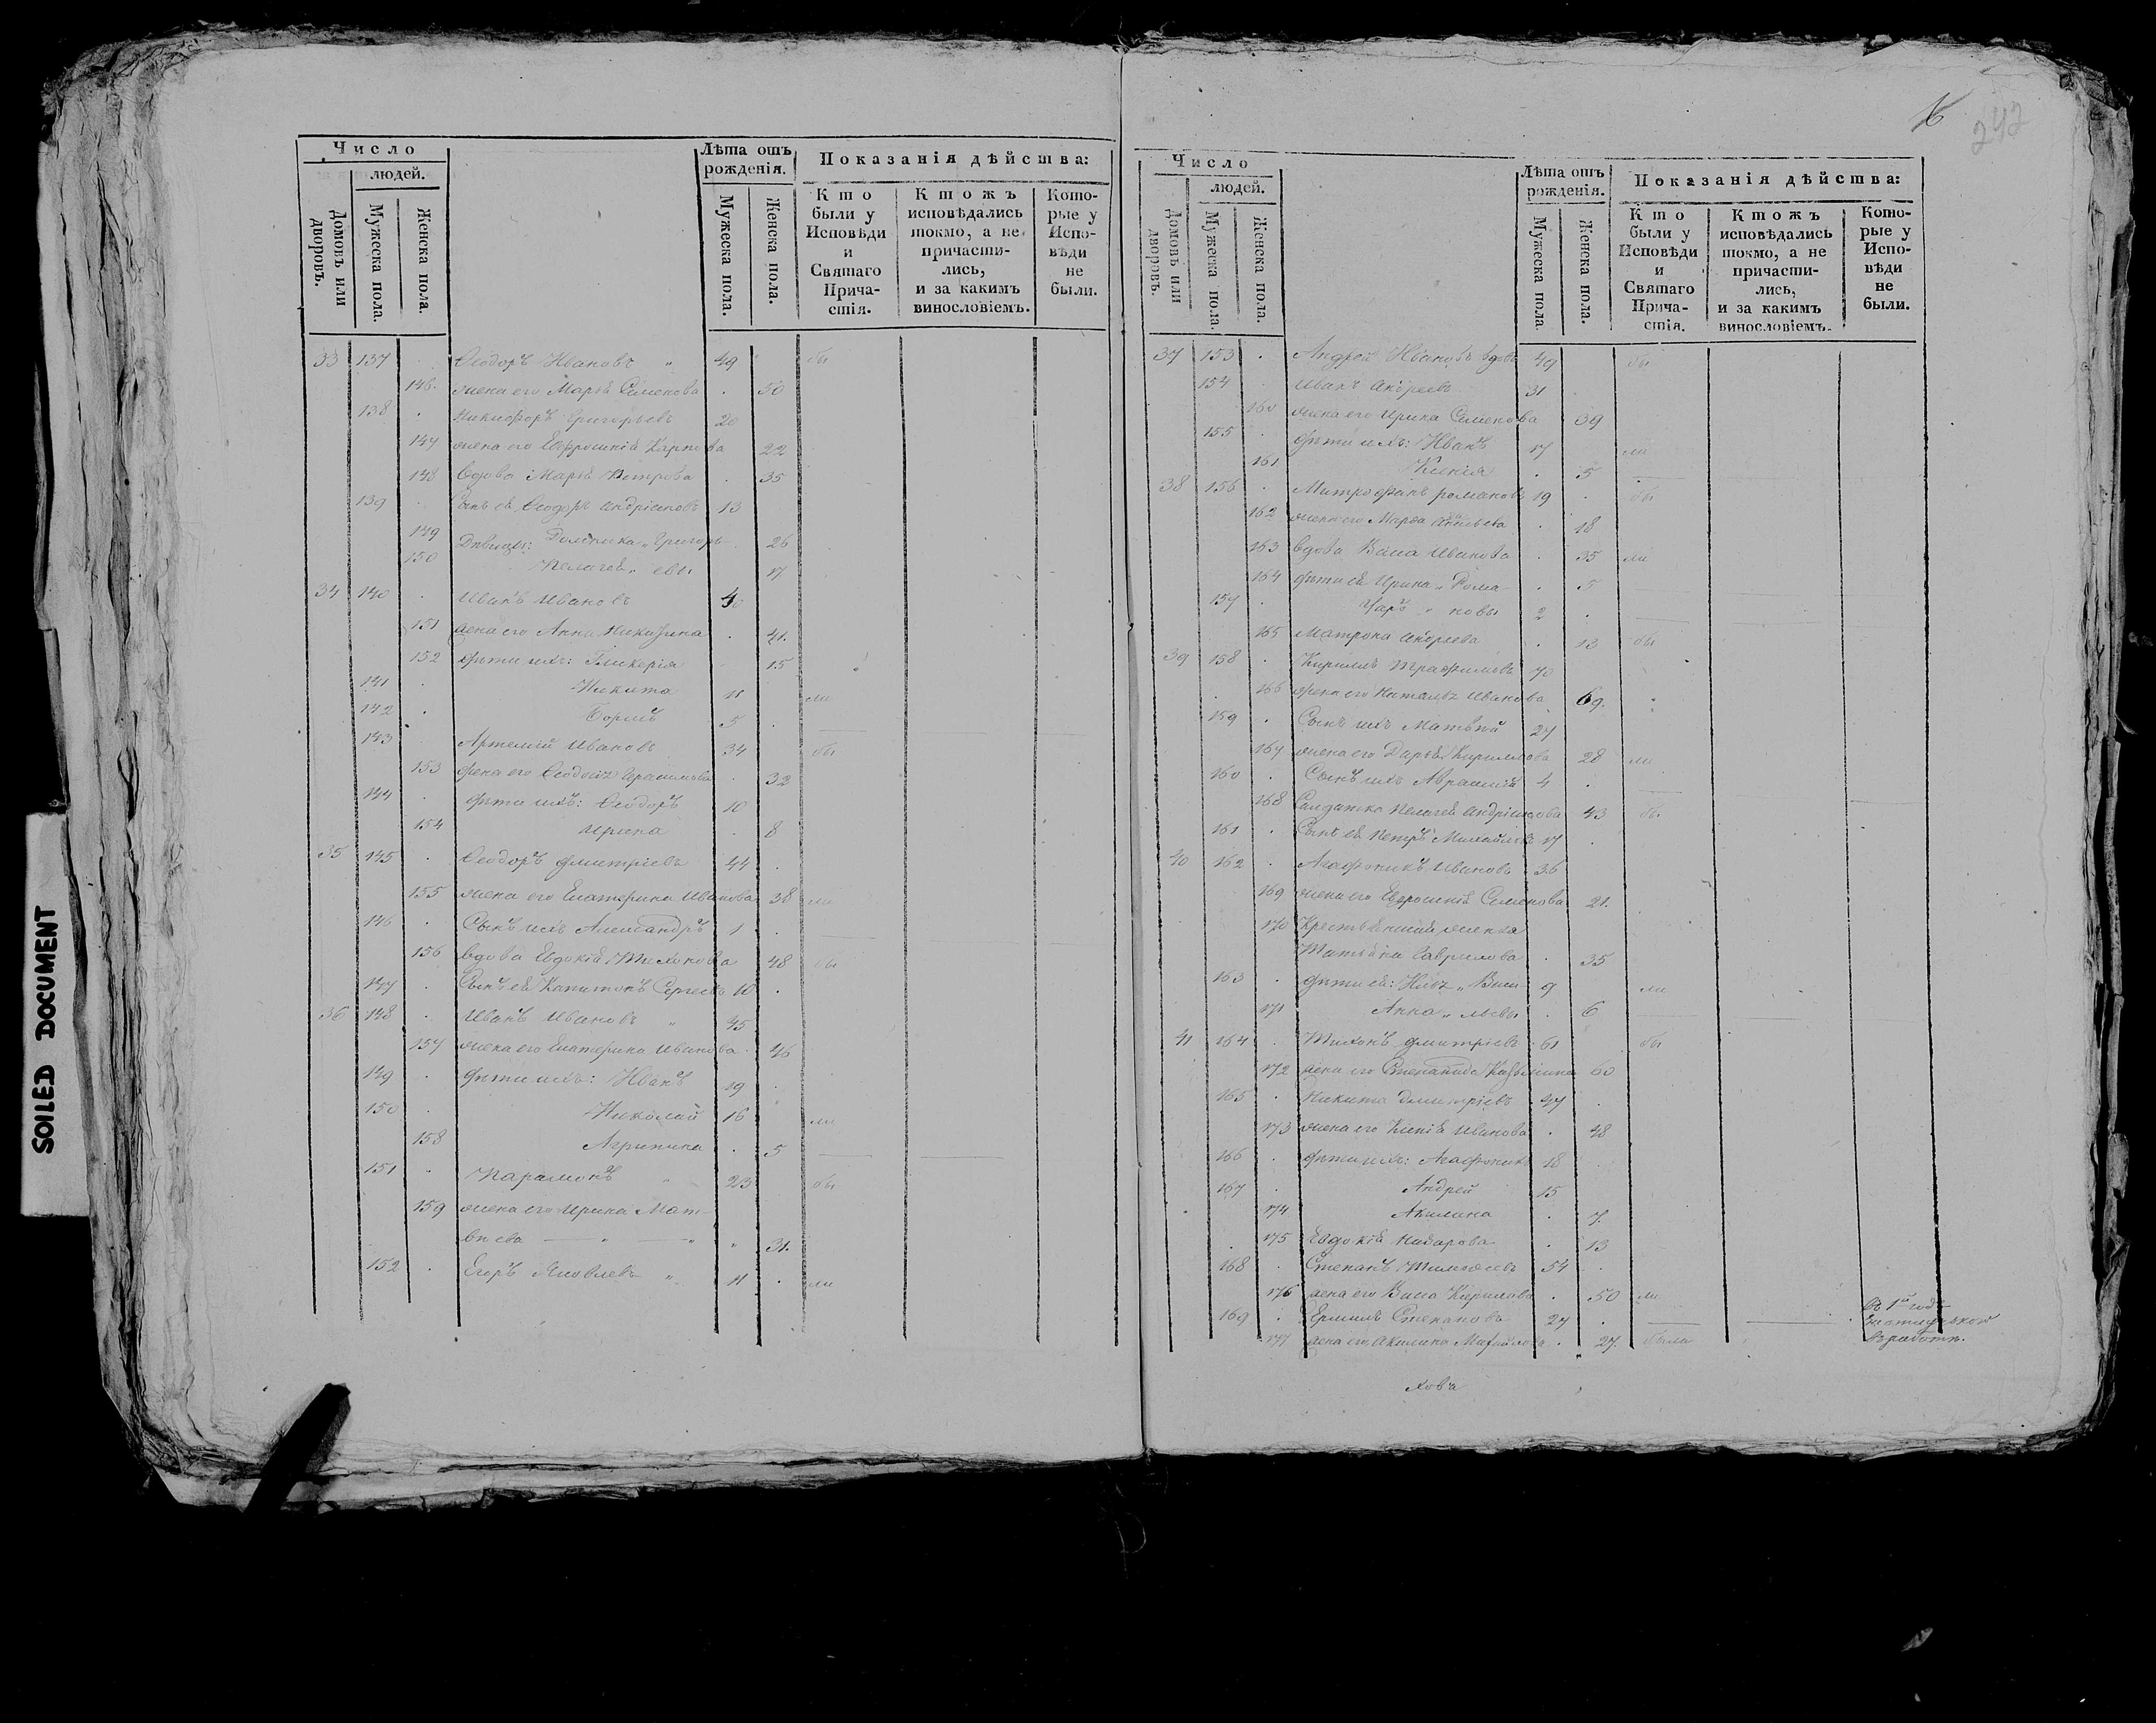 SOILED DOCUMENT
16
242
Число
людей.
Домовъ или дворовъ.
Мужеска пола.
Женска пола.
Лѣта отъ рожденія.
Мужеска пола.
Женска пола.
Показанія дѣйства:
Кто были у Исповѣди и Святаго Прича-стія.
Ктожъ исповѣдались токмо, а не причасти-лись, и за какимъ винословіемъ.
Кото-рые у Испо-вѣди не были.
33 137 Ѳеодоръ Ивановъ 49 бы
146 жена его Марѳа Семенова 50
138 Никифоръ Григорьевъ 20
147 жена его Евфросинія Карпова 22
148 вдова Марѳа Петрова 35
139 Сынъ ея Ѳеодоръ Андріановъ 13
149 Дѣвицы: Григорь- 26
150 Пелагея евы 17
34 140 Иванъ Ивановъ 40
151 жена его Анна Никитина 41
152 дѣти ихъ: Гликерія 15
141 Никита 11 ли
142 Борисъ 5
143 Артемій Ивановъ 34 бы
153 жена его Ѳеодосія Герасимова 32
144 дѣти ихъ: Ѳеодоръ 10
154 Ирина 8
35 145 Ѳеодоръ Дмитріевъ 44
155 жена его Екатерина Иванова 38 ли
146 Сынъ ихъ Александръ 1
156 вдова Евдокія Тихонова 48 бы
147 Сынъ ея Капитонъ Сергеевъ 10
36 148 Иванъ Ивановъ 45
157 жена его Екатерина Иванова 46
149 дѣти ихъ: Иванъ 19
150 Николай 16 ли
158 Агрипина 5
151 Парамонъ 23 бы
159 жена его Ирина Мат-
вѣева 31
152 Егоръ Яковлевъ 11 ли
Число
людей.
Домовъ или дворовъ.
Мужеска пола.
Женска пола.
Лѣта отъ рожденія.
Мужеска пола.
Женска пола.
Показанія дѣйства:
Кто были у Исповѣди и Святаго Прича-стія.
Ктожъ исповѣдались токмо, а не причасти-лись, и за какимъ винословіемъ.
Кото-рые у Испо-вѣди не были.
37 153 Андрей Ивановъ вдовъ 49 бы
154 Иванъ Андреевъ 31
160 жена его Ирина Семенова 39
155 дѣти ихъ: Иванъ 17 ли
161 Ксенія 5
38 156 Митрофанъ Романовъ 19 бы
162 жена его Марѳа 18
163 вдова Васса Иванова 35 ли
164 дѣти ея Ирина Рома- 5
157 новы 2
165 Матрона Андреева 13 бы
39 158 Кирилъ Трафимовъ 70
166 жена его Наталья Иванова 69
159 Сынъ ихъ Матвѣй 27
167 жена его Дарья Кирилова 28 ли
160 Сынъ ихъ 4
168 Салдатка Пелагея Андріанова 43 бы
161 Сынъ ея Петръ Михайловъ 17
40 162 Агафоникъ Ивановъ 36
169 жена его Евфросинія Семенова 21
170 жена
Татьяна Гаврилова 35
163 дѣти ея: Васи- 9 ли
171 Анна льевы 6
41 164 Тихонъ Дмитріевъ 61 бы
172 жена его Степанида Казьмина 60
165 Никита Дмитріевъ 47
173 жена его Ксенія Иванова 48
166 дѣти ихъ: Агафоникъ 18
167 Андрей 15
174 Акилина 7
175 Евдокія Назарова 13
168 Степанъ Тимоѳеевъ 54
176 жена его Васса Кирилова 50 ли
169 Ермилъ Степановъ 27 въ работѣ.
177 жена его Акилина 27 была
хова